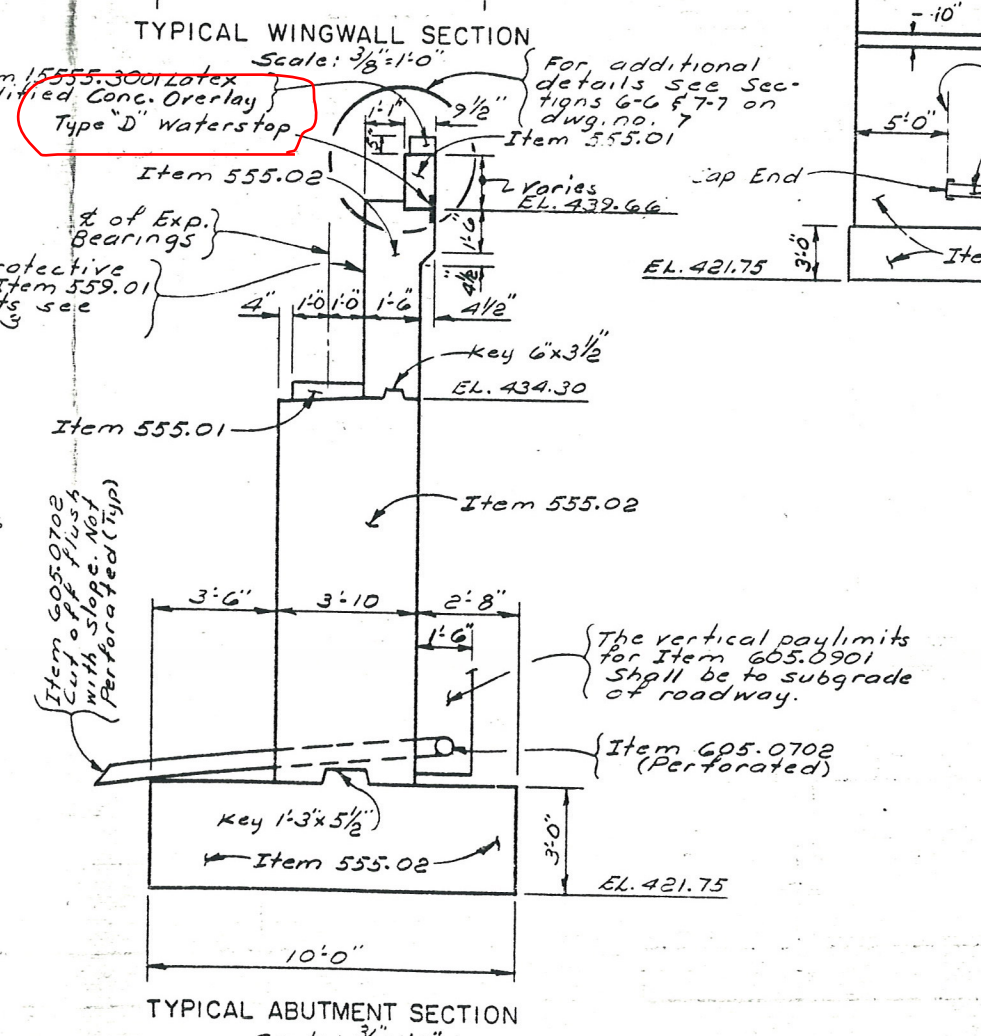 TYPICAL WINGWALL SECTION
Scale: 3/8"=1'-0"
m 15555.3001 Latex
dified Conc. Overlay
Type "D" Waterstop
For additional
details see sec-
tions 6-6 & 7-7 on
dwg. no. 7
1'-1"
9 1/2"
5"
Item 555.01
Item 555.02
varies
EL. 439.66
1'-6"
4 1/2"
℄ of Exp.
Bearings
rotective
Item 559.01
ts see
4"
1'-0
1'-0
1'-6"
4 1/2"
Key 6"x3 1/2"
EL. 434.30
Item 555.01
Item 555.02
Item 605.0702
Cut off flush
with slope. Not
Perforated (Typ)
3'-6"
3'-10
2'-8"
1'-6"
The vertical paylimits
for Item 605.0901
Shall be to subgrade
of roadway.
Item 605.0702
(Perforated)
Key 1'-3"x5 1/2"
Item 555.02
3'-0"
EL. 421.75
10'-0"
TYPICAL ABUTMENT SECTION
-10"
5'-0"
Cap End
3'-0"
EL. 421.75
Ite